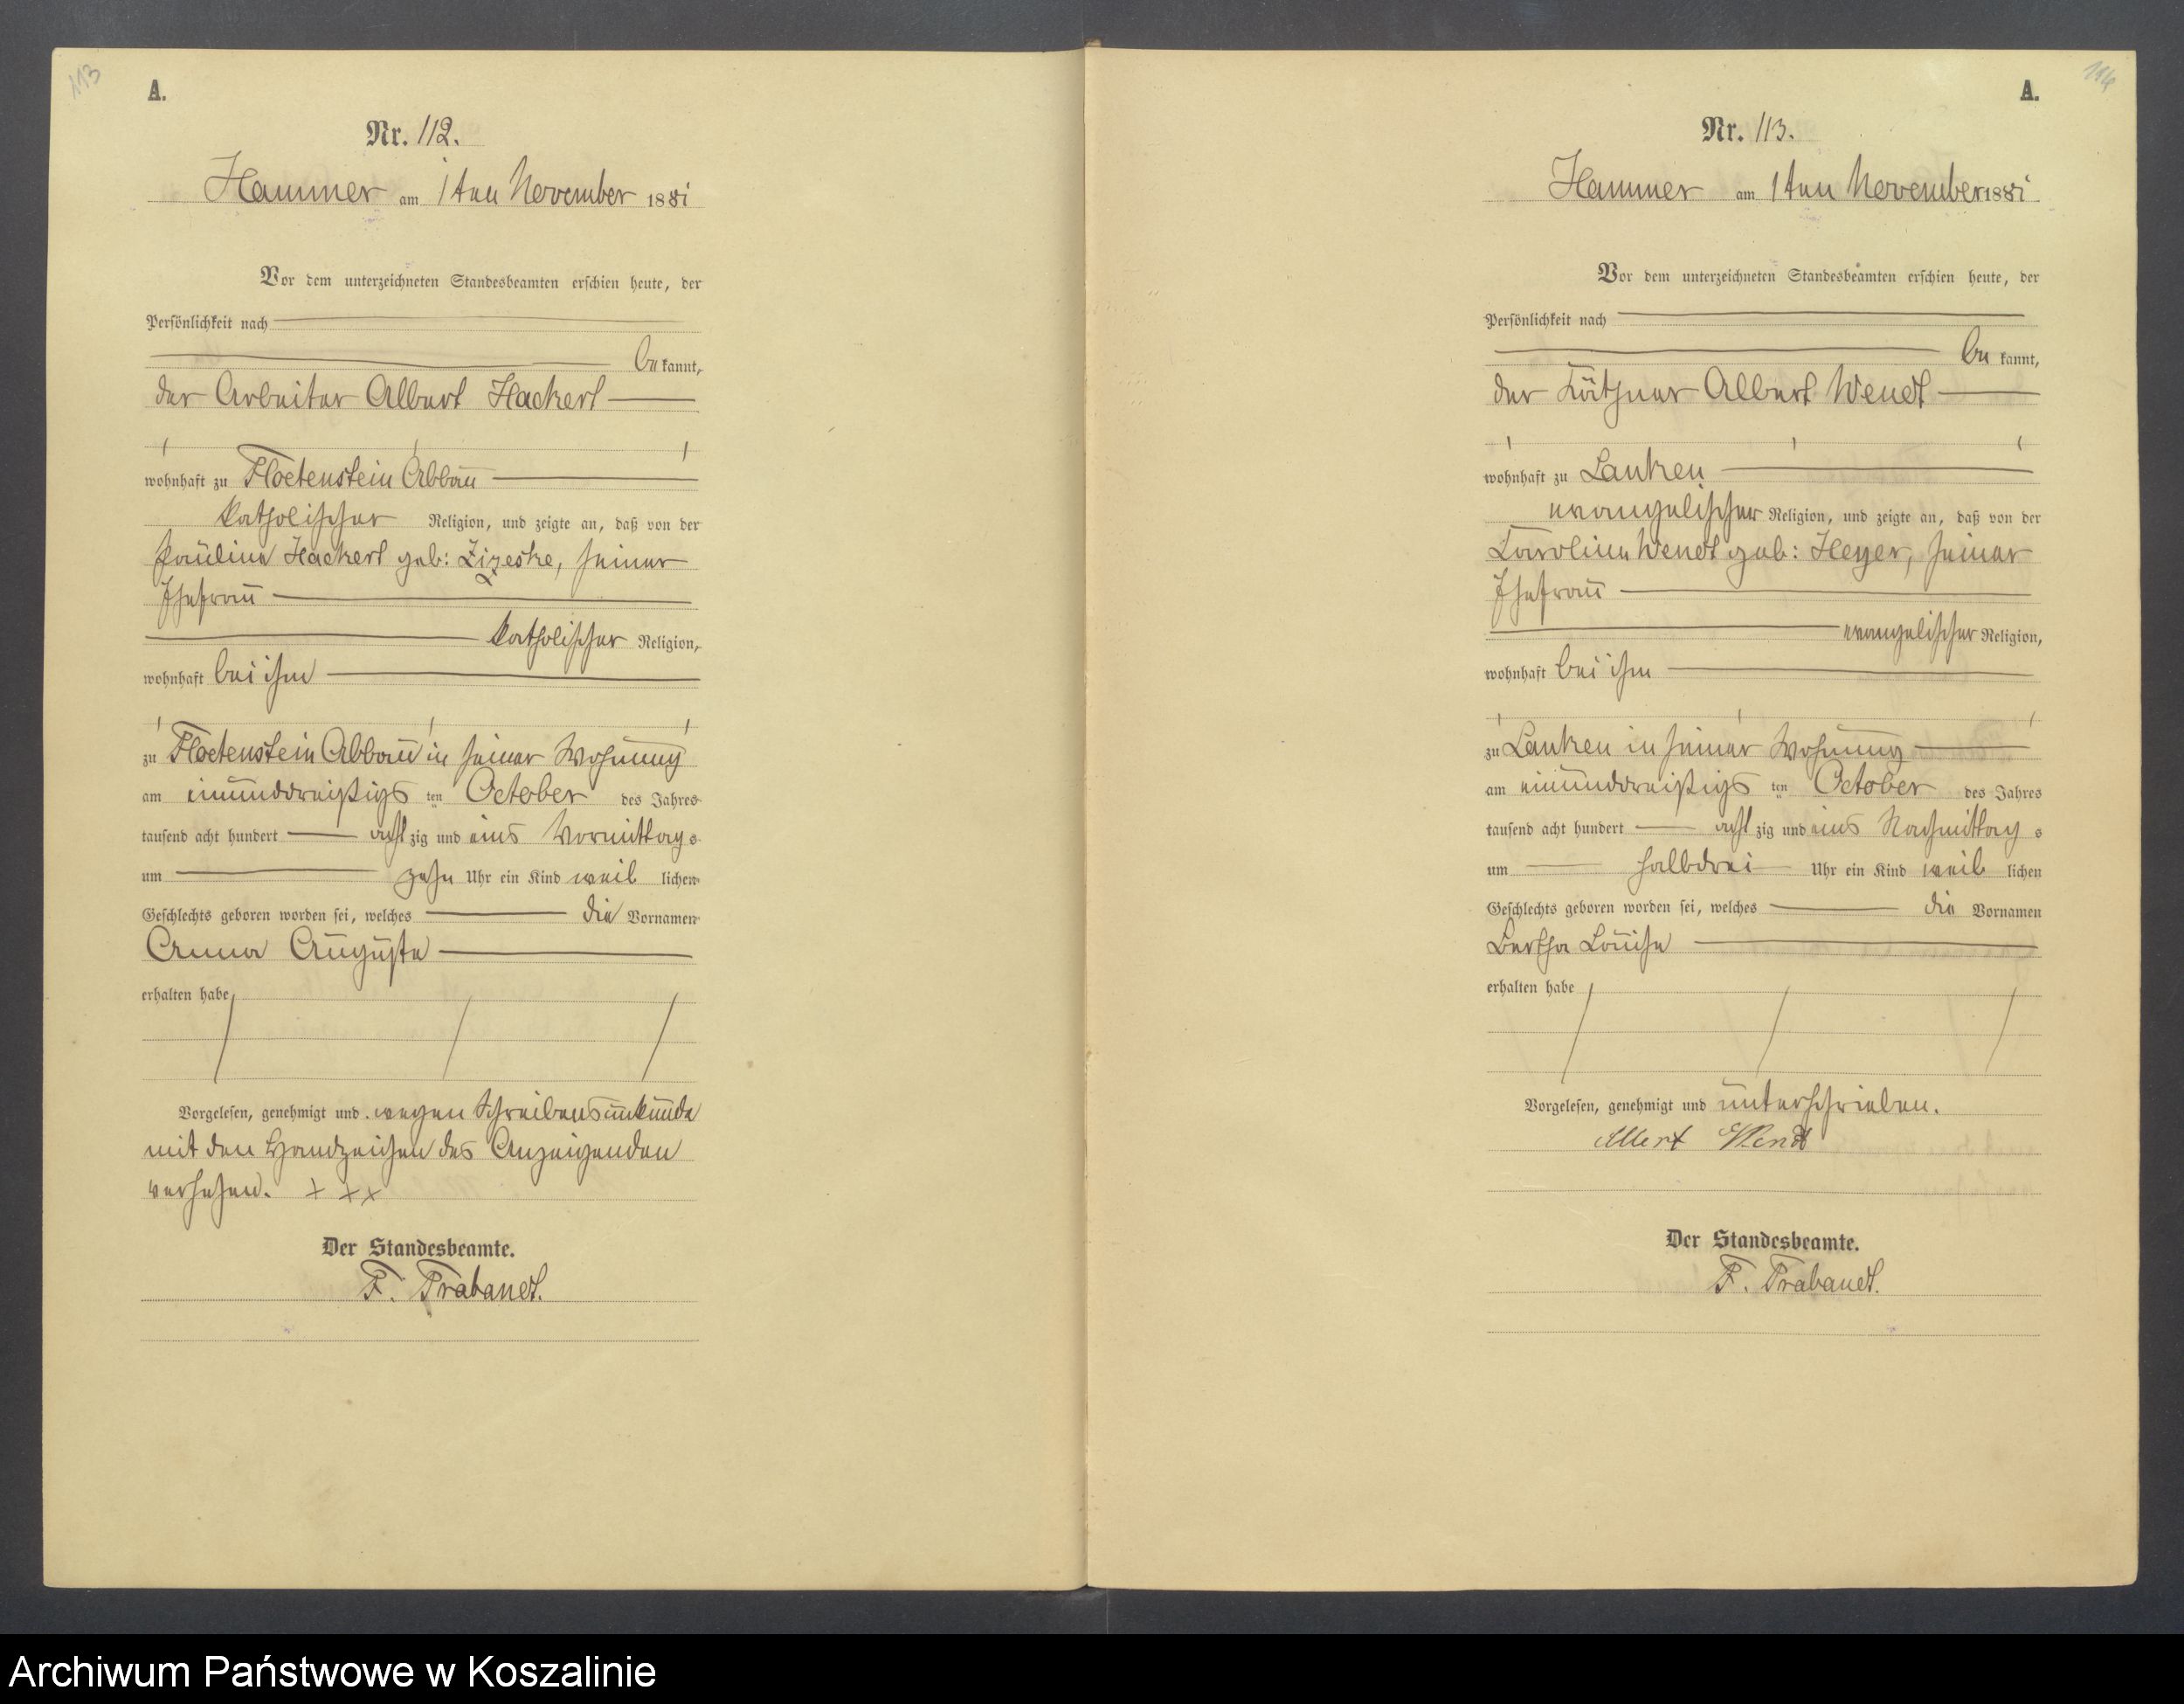 113
A.
Nr. 112.
Hammer am 1ten November 1881
Vor dem unterzeichneten Standesbeamten erschien heute, der
Persönlichkeit nach
bekannt,
der Arbeiter Albert Hackert
wohnhaft zu Floetenstein Abbau
katholischer Religion, und zeigte an, daß von der
Pauline Hackert geb: Zizeske, seiner
Ehefrau
katholischer Religion,
wohnhaft bei ihm
zu Floetenstein Abbau in seiner Wohnung
am einunddreißigsten October des Jahres
tausend acht hundert achtzig und eins Vormittags
um zehn Uhr ein Kind weiblichen
Geschlechts geboren worden sei, welches die Vornamen
Anna Auguste
erhalten habe
Vorgelesen, genehmigt und wegen Schreibensunkunde
mit den Handzeichen des Anzeigenden
versehen. + + +
Der Standesbeamte.
F. Trabandt.
114
A.
Nr. 113.
Hammer am 1ten November 1881
Vor dem unterzeichneten Standesbeamten erschien heute, der
Persönlichkeit nach
bekannt,
der Käthner Albert Wendt
wohnhaft zu Lanken
evangelischer Religion, und zeigte an, daß von der
Caroline Wendt geb: Heyer, seiner
Ehefrau
evangelischer Religion,
wohnhaft bei ihm
zu Lanken in seiner Wohnung
am einunddreißigsten October des Jahres
tausend acht hundert achtzig und eins Nachmittags
um halbdrei Uhr ein Kind weiblichen
Geschlechts geboren worden sei, welches die Vornamen
Bertha Louise
erhalten habe
Vorgelesen, genehmigt und unterschrieben.
Albert Wendt
Der Standesbeamte.
F. Trabandt.
Archiwum Państwowe w Koszalinie